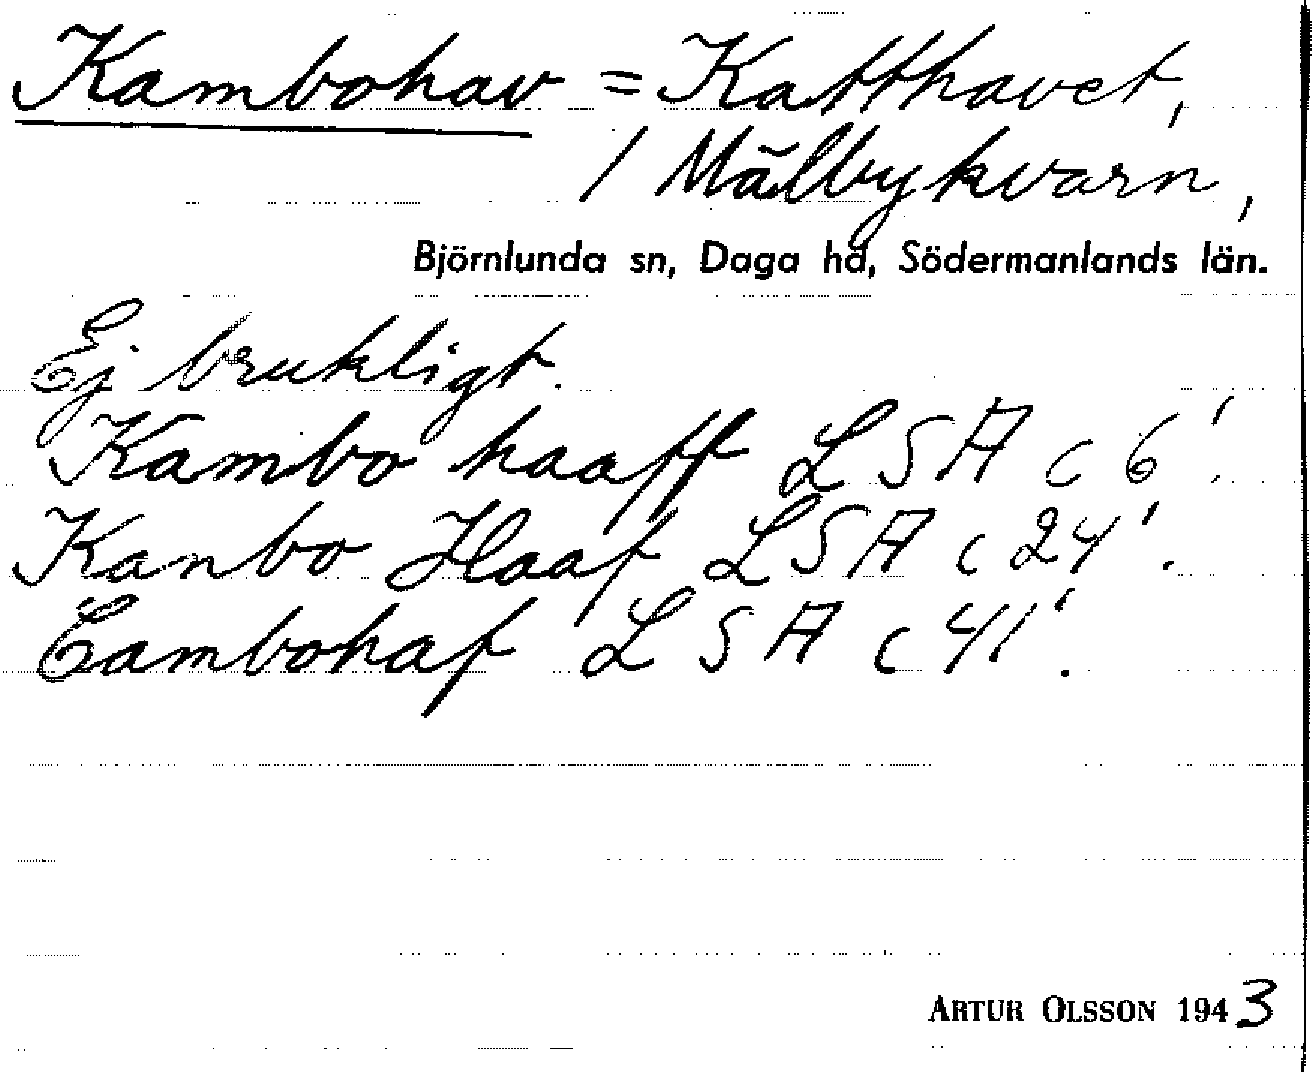 Kambohav = Katthavet,
/ Mälbykvarn,
Björnlunda sn, Daga hd, Södermanlands län.
Ej brukligt.
Kambo haaff LSA c 6'.
Kanbo Haaf LSA c 24'.
Cambohaf LSA c 41'.
ARTUR OLSSON 1943